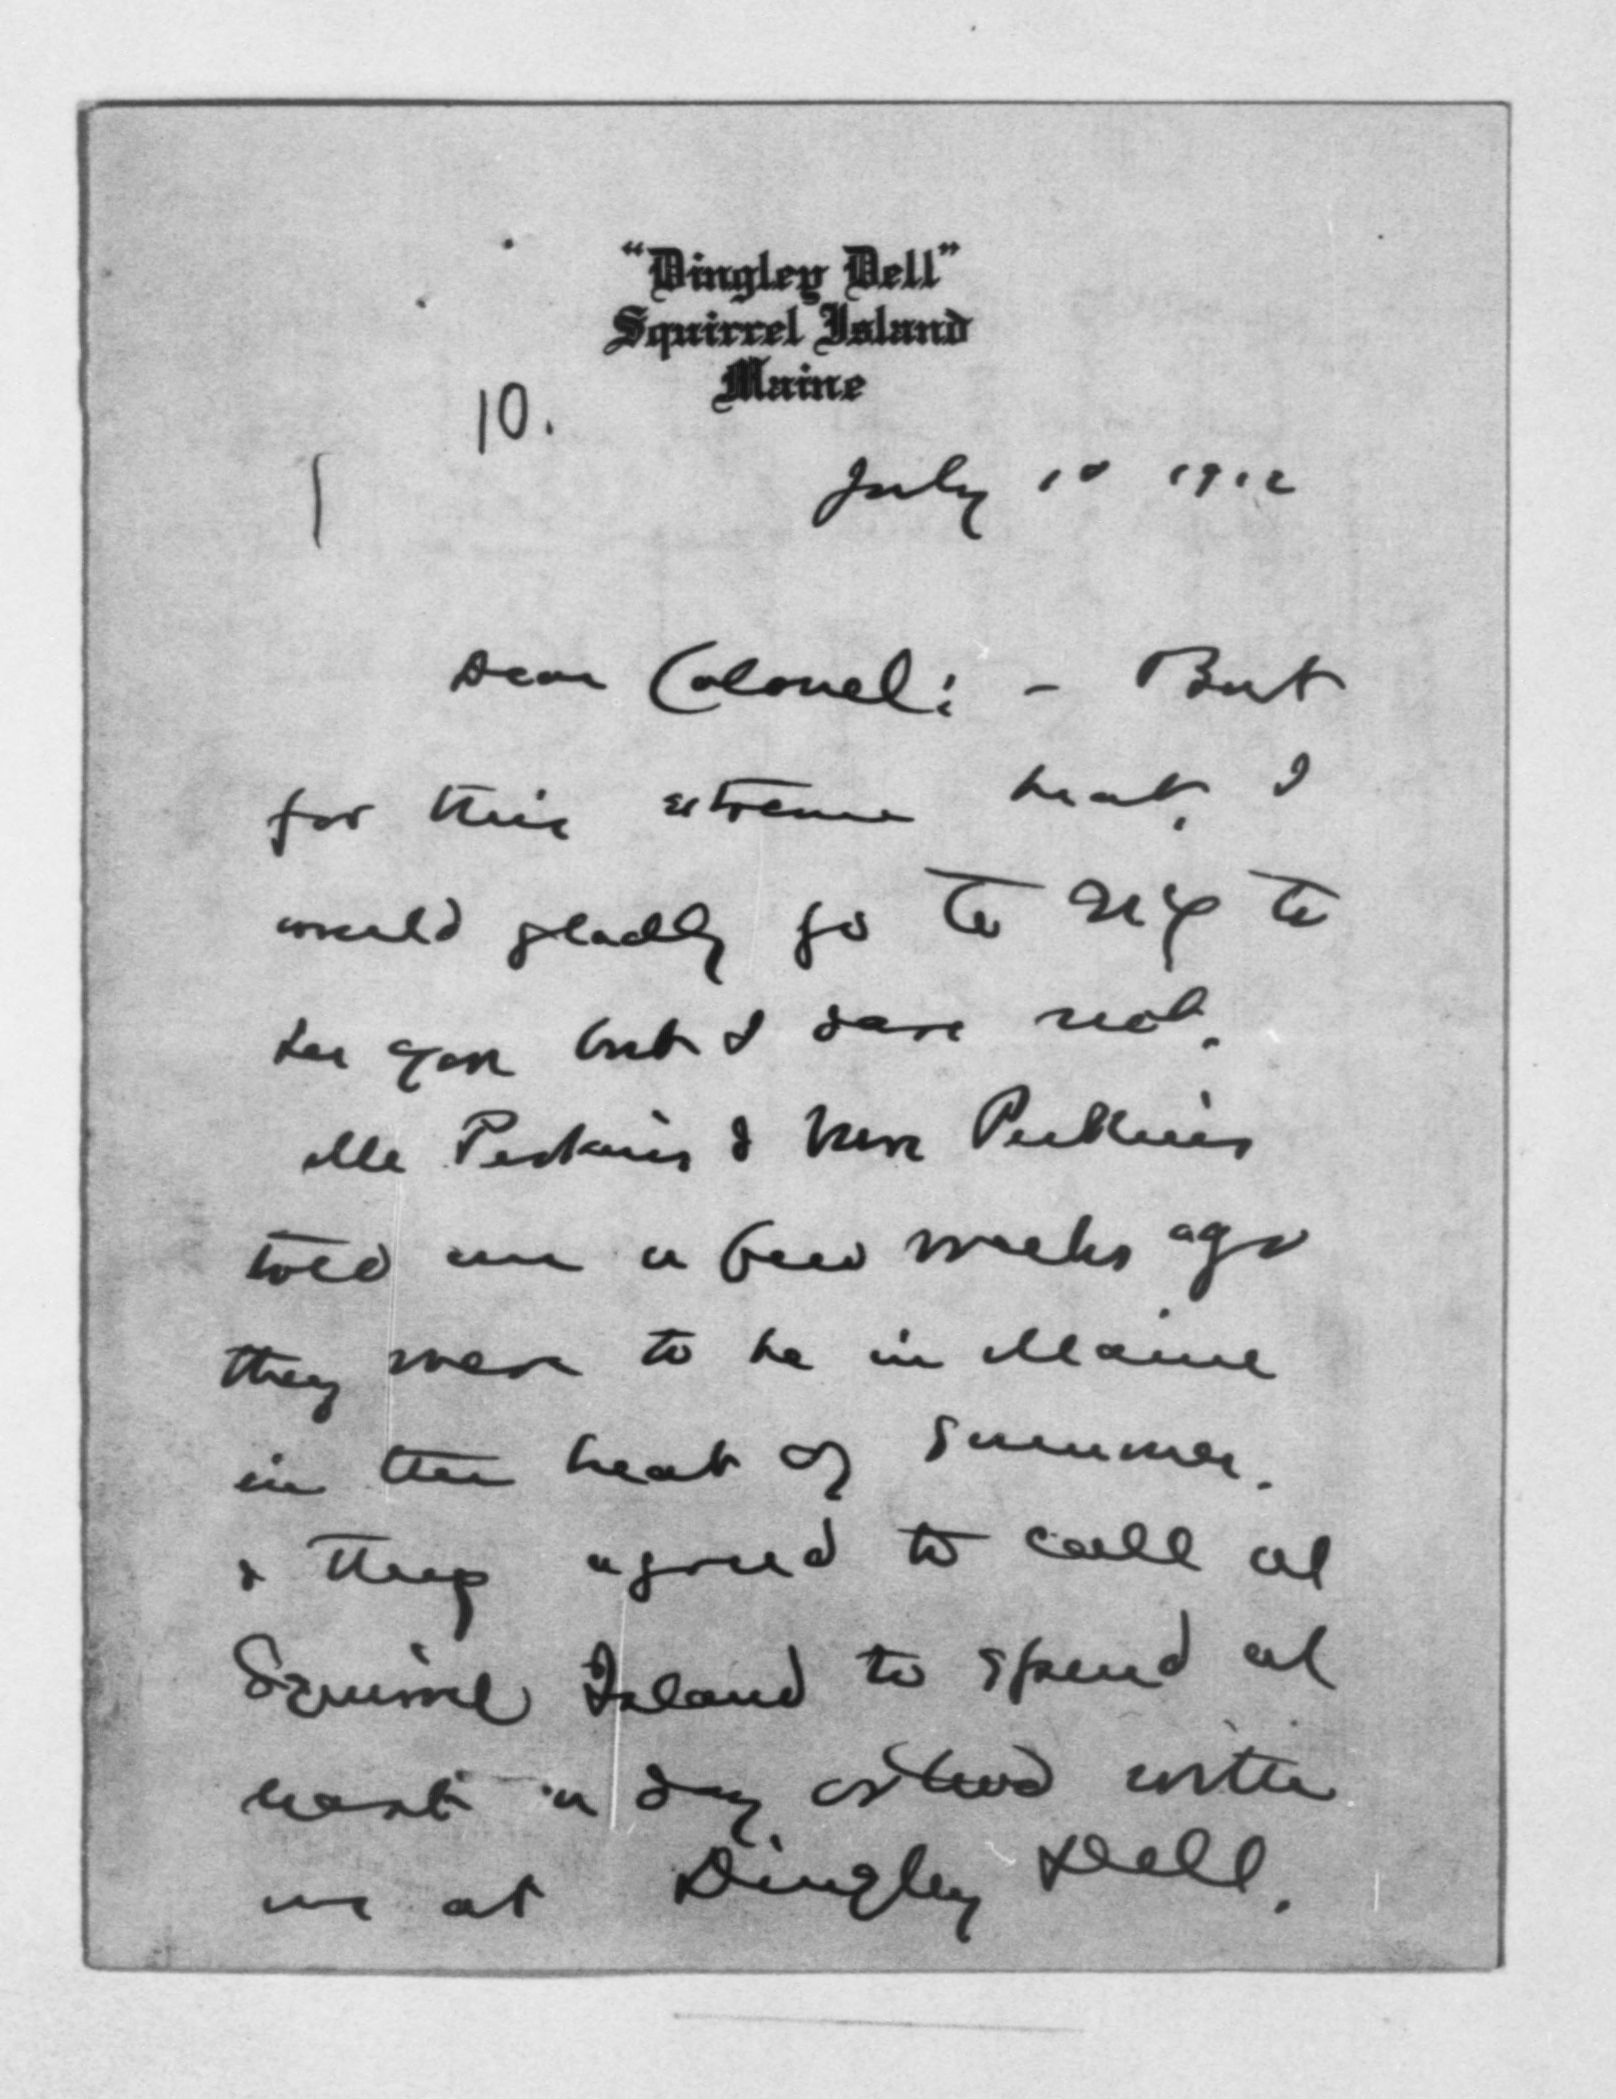 "Dingley Dell"
Squirrel Island
Maine
10.
July 10 1912
Dear Colonel: - But
for this extreme heat, I
would gladly go to NY to
see you but I dare not.
Mr Perkins & Mrs Perkins
told me a few weeks ago
they were to be in Maine
in the heat of summer.
& they agreed to call at
Squirrel Island to spend at
least a day or two with
me at Dingley Dell.